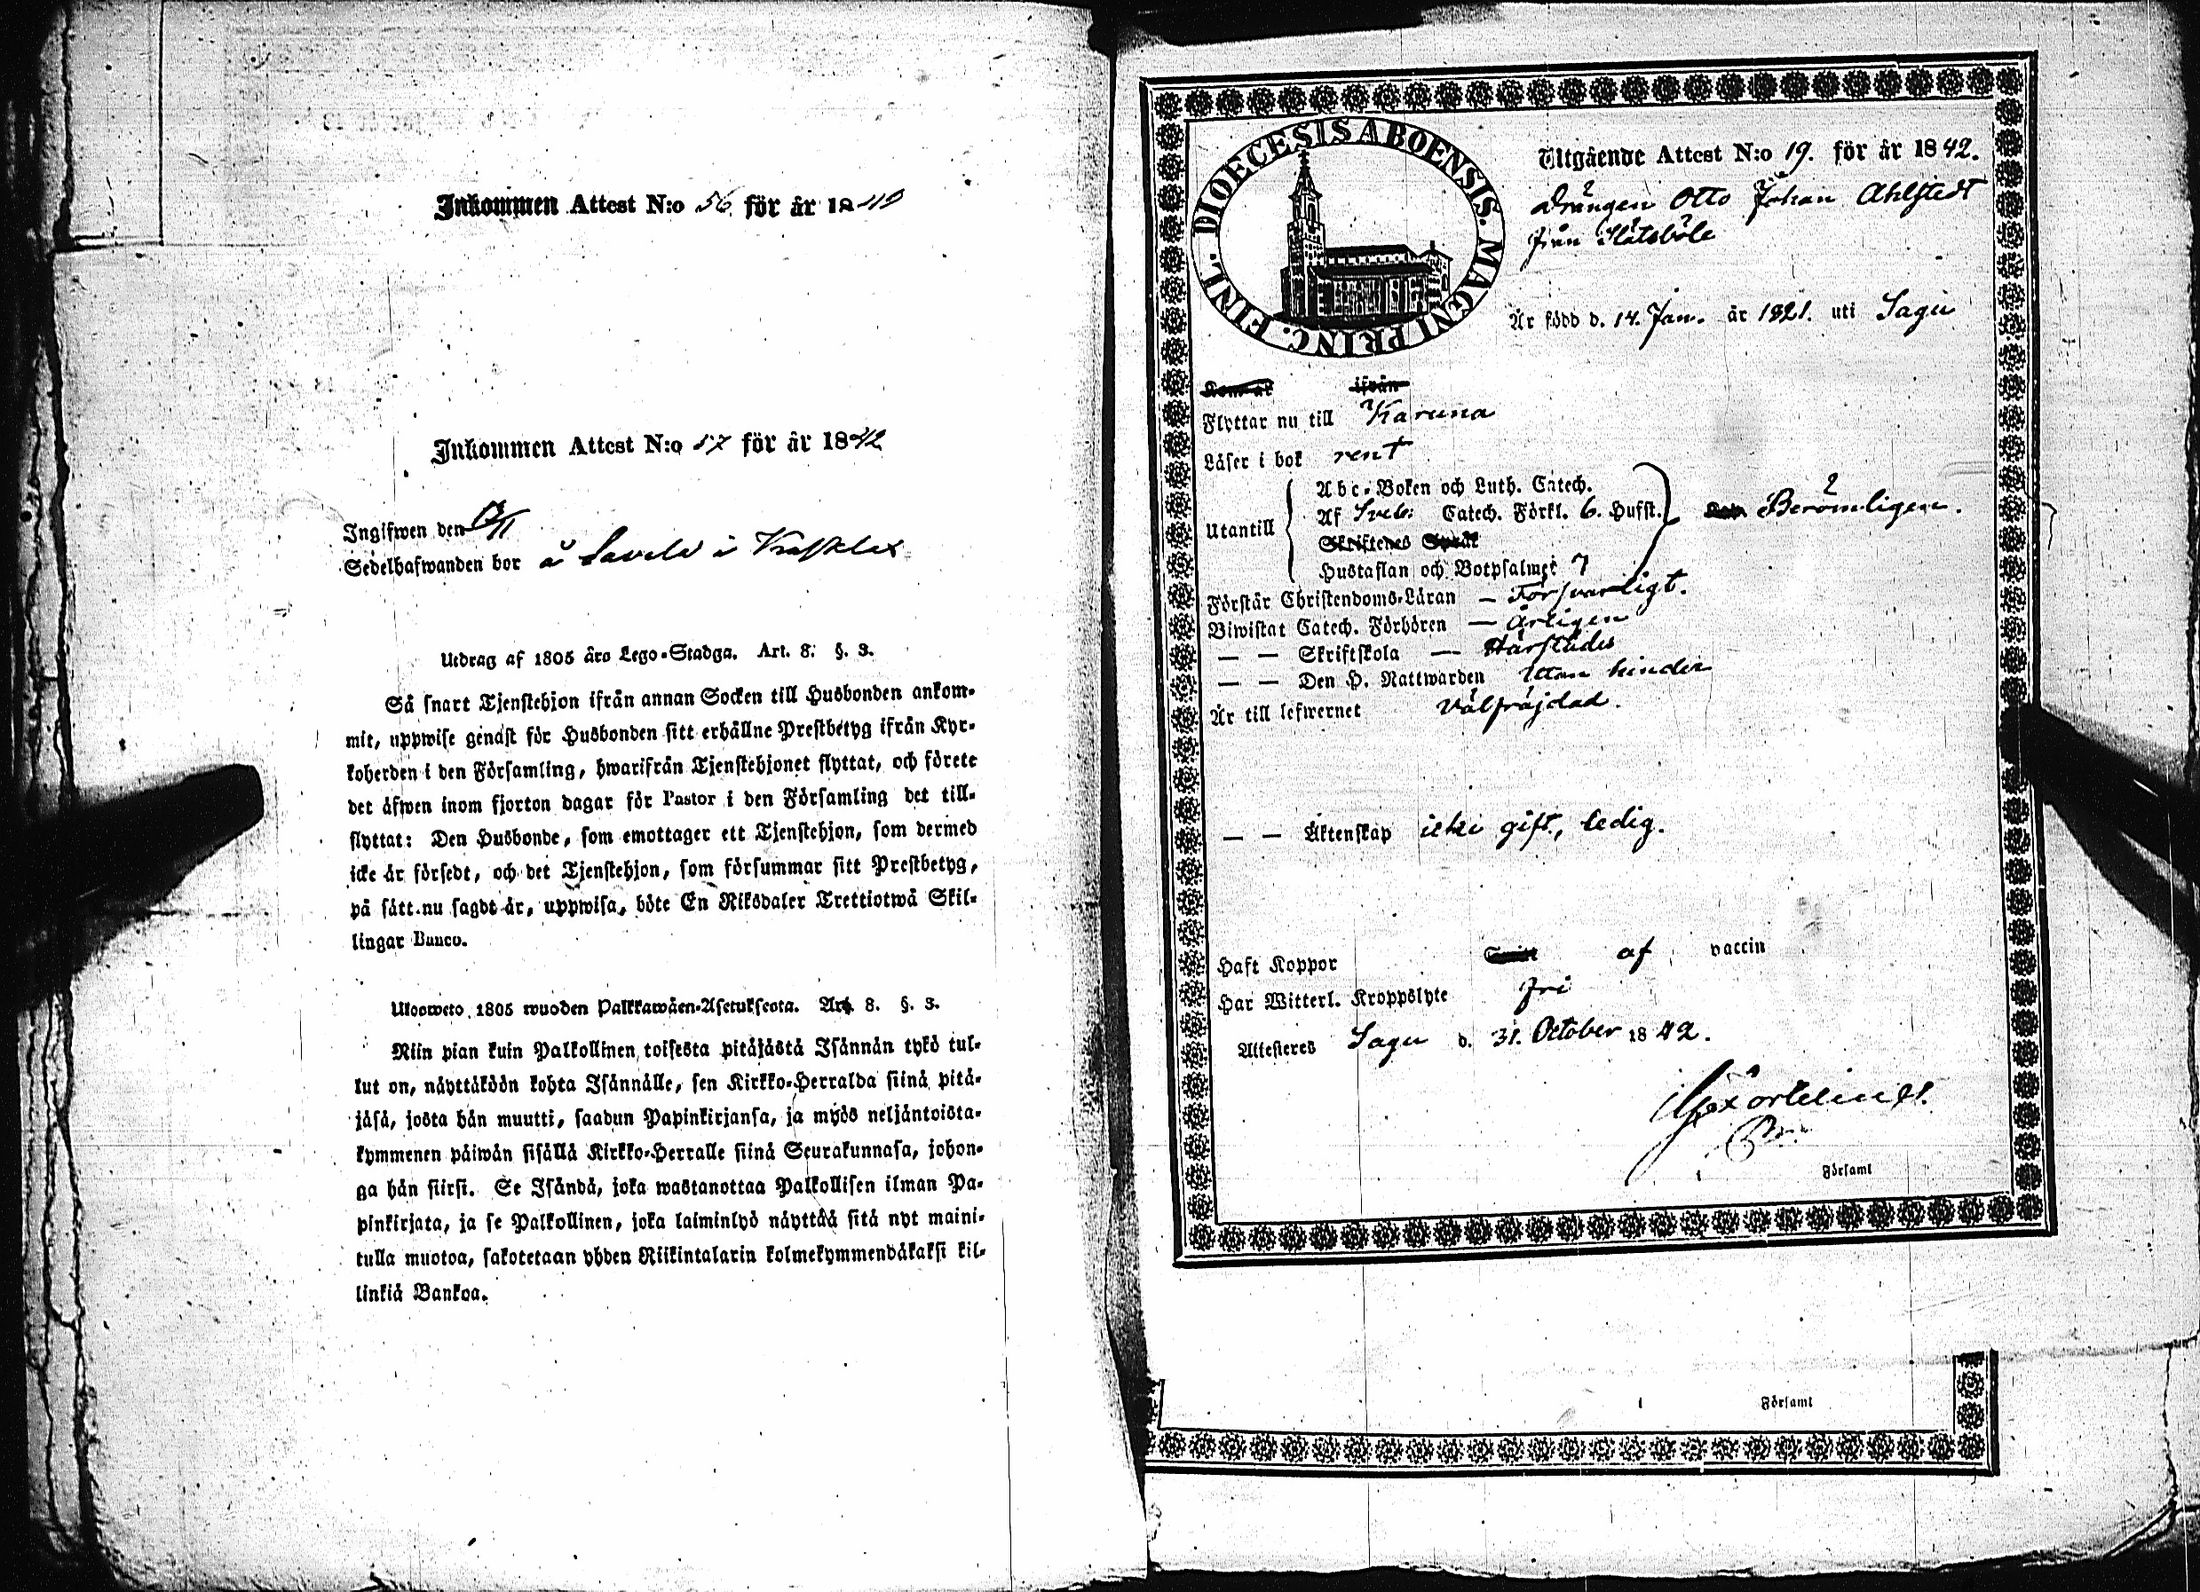 Inkommen Attest N:o 56 för år 18
Inkommen Attest N:o 57 för år 1842
Ingifwen den
Sedelhafwanden bor å
Utdrag af 1805 års Lego-Stadga. Art. 8. §. 3.
Så snart Tjenstehjon ifrån annan Socken till Husbonden ankom-
mit, uppwise genast för Husbonden sitt erhållne Prestbetyg ifrån Kyr-
koherden i den Församling, hwarifrån Tjenstehjonet flyttat, och förete
det äfwen inom fjorton dagar för Pastor i den Församling det till-
flyttat: Den Husbonde, som emottager ett Tjenstehjon, som dermed
icke är försedt, och det Tjenstehjon, som försummar sitt Prestbetyg,
på sätt nu sagdt är, uppwisa, böte En Riksdaler Trettiotwå Skil-
lingar Banco.
Uloosweto 1805 wuoden Palkkawäen-Asetuksesta. Art. 8. §. 3.
Niin pian kuin Palkollinen toisesta pitäjästä Isännän tykö tul-
lut on, näyttäköön kohta Isännälle, sen Kirkko-Herralda siinä pitä-
jäsä, josta hän muutti, saadun Papinkirjansa, ja myös neljäntoista-
kymmenen päiwän sisällä Kirkko-Herralle siinä Seurakunnasa, johon-
ga hän siirsi. Se Isändä, joka wastanottaa Palkollisen ilman Pa-
pinkirjata, ja se Palkollinen, joka laiminlyö näyttää sitä nyt maini-
tulla muotoa, sakotetaan yhden Riikintalarin kolmekymmendäkaksi kil-
linkiä Bankoa.
DIOECESIS ABOENSIS. MAGNI PRINC. FINL.
Utgående Attest N:o 19. för år 1842.
Drängen Otto Johan Ahlstedt
från
Är född d. 14. Jan. år 1821. uti Sagu
ifrån
Flyttar nu till Karuna
Läser i bok rent
Utantill
Abc-Boken och Luth. Catech.
Af Sveb. Catech. Förkl. 6. Hufst.
Skriftenes Språk
Hustaflan och Botpsalmer 7
Berömligen.
Förstår Christendoms-Läran — Försvarligt.
Biwistat Catech. Förhören — årligen
— — Skriftskola — Härstädes
— — Den H. Nattwarden utan hinder
Är till lefwernet Välfräjdad.
— — Äktenskap icke gift, ledig.
Haft Koppor af vaccin
Har Witterl. Kroppslyte fri
Attesteres Sagu d. 31. October 1842.
i Församl
i Församl